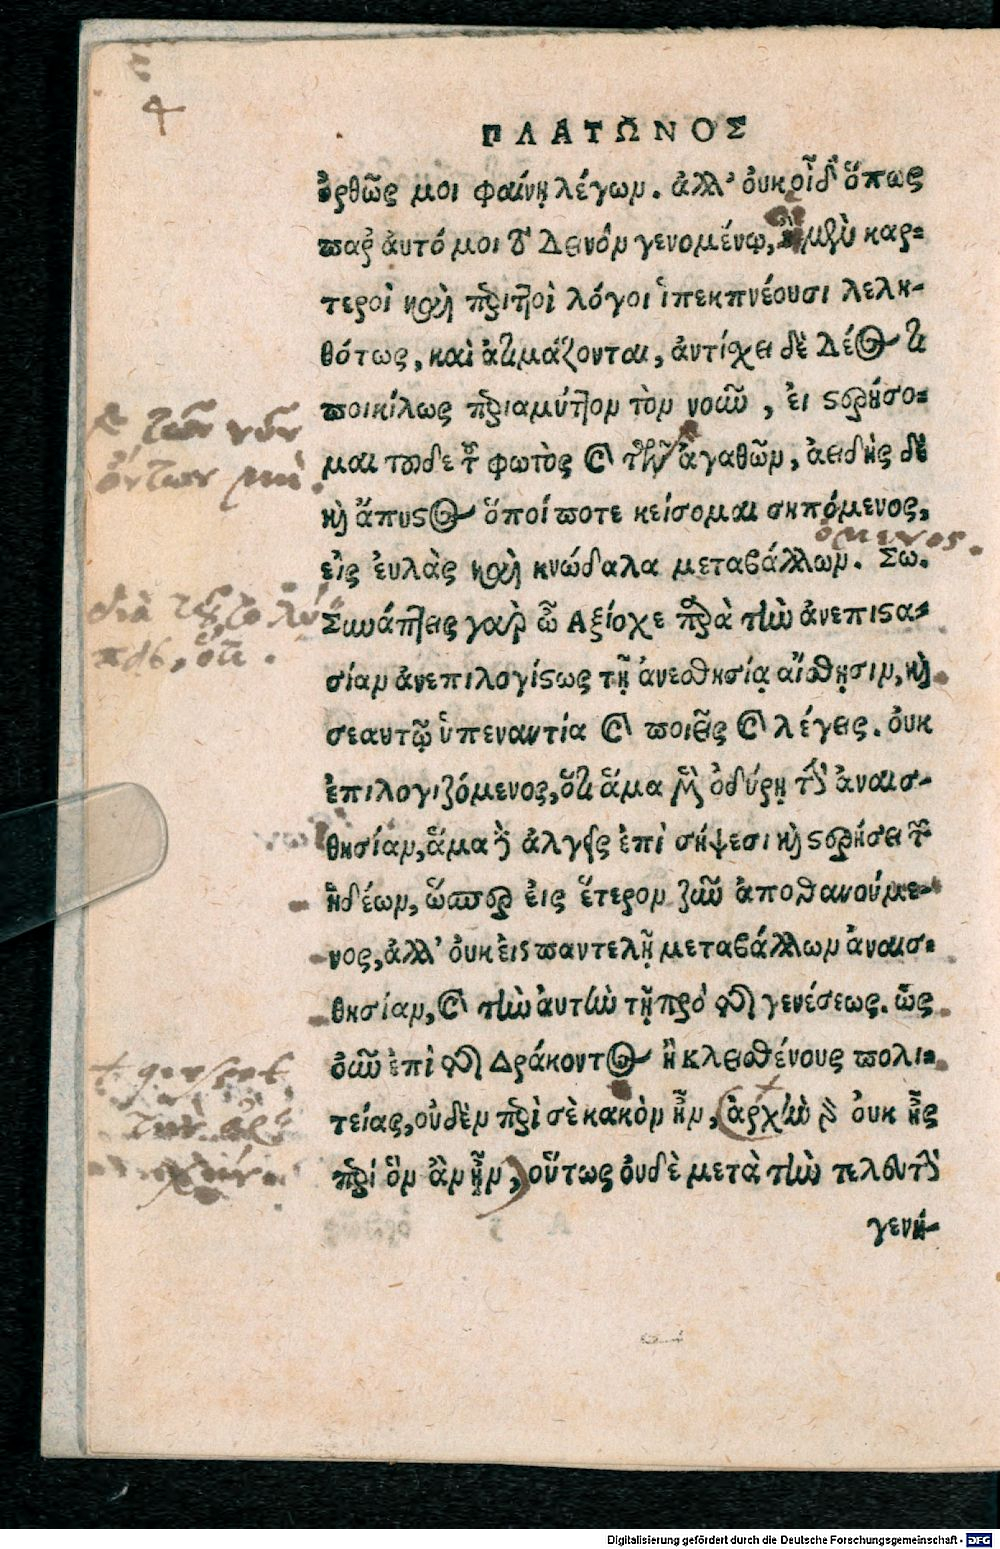 ΠΛΑΤΩΝΟΣ
ὀρθῶς μοι φαίνῃ λέγων. ἀλλ' οὐκ οἶδ' ὅπως
παρ' αὐτό μοι τὸ δεινὸν γενομένῳ, οἱ μὲν καρ-
τεροὶ καὶ περιττοὶ λόγοι ὑπεκπνέουσι λελη-
θότως, καὶ ἀτιμάζονται, ἀντίχει δὲ δέος τι
ποικίλως περιαμύττον τὸν νοῦν, εἰ στερήσο-
μαι τοῦδε τοῦ φωτὸς καὶ τῶν ἀγαθῶν, ἀειδὴς δὲ
καὶ ἄπυστος ὅποί ποτε κείσομαι σηπόμενος,
εἰς εὐλὰς καὶ κνώδαλα μεταβάλλων. Σω.
Συνάπτεις γαρ ὦ Αξίοχε παρὰ τὴν ἀνεπιστα-
σίαν ἀνεπιλογίστως τῇ ἀνεσθησίᾳ αἴσθησιν, καὶ
σεαυτῷ ὑπεναντία καὶ ποιεῖς καὶ λέγεις. οὐκ
ἐπιλογιζόμενος, ὅτι ἅμα μὲν ὀδύρῃ τὴν ἀναισ-
θησίαν, ἅμα δὲ ἀλγεῖς ἐπὶ σήψεσι καὶ στερήσει τῶν
ἡδέων, ὥσπερ εἰς ἕτερον ζῶν ἀποθανούμε-
νος, ἀλλ' οὐκ εἰς παντελῆ μεταβάλλων ἀναισ-
θησίαν, καὶ τὴν αὐτὴν τῇ πρὸ τῆς γενέσεως. ὡς
οὖν ἐπὶ τῆς Δράκοντος ἢ Κλεισθένους πολι-
τείας, οὐδὲν περὶ σὲ κακὸν ἦν, (ἀρχὴν γὰρ οὐκ ἦς
περὶ ὃν ἂν ἦν,) οὕτως οὐδὲ μετὰ τὴν τελευτὴν
γενή-
τῶν νῦν
ὄντων μὴ
όμενος.
Digitalisierung gefördert durch die Deutsche Forschungsgemeinschaft - DFG